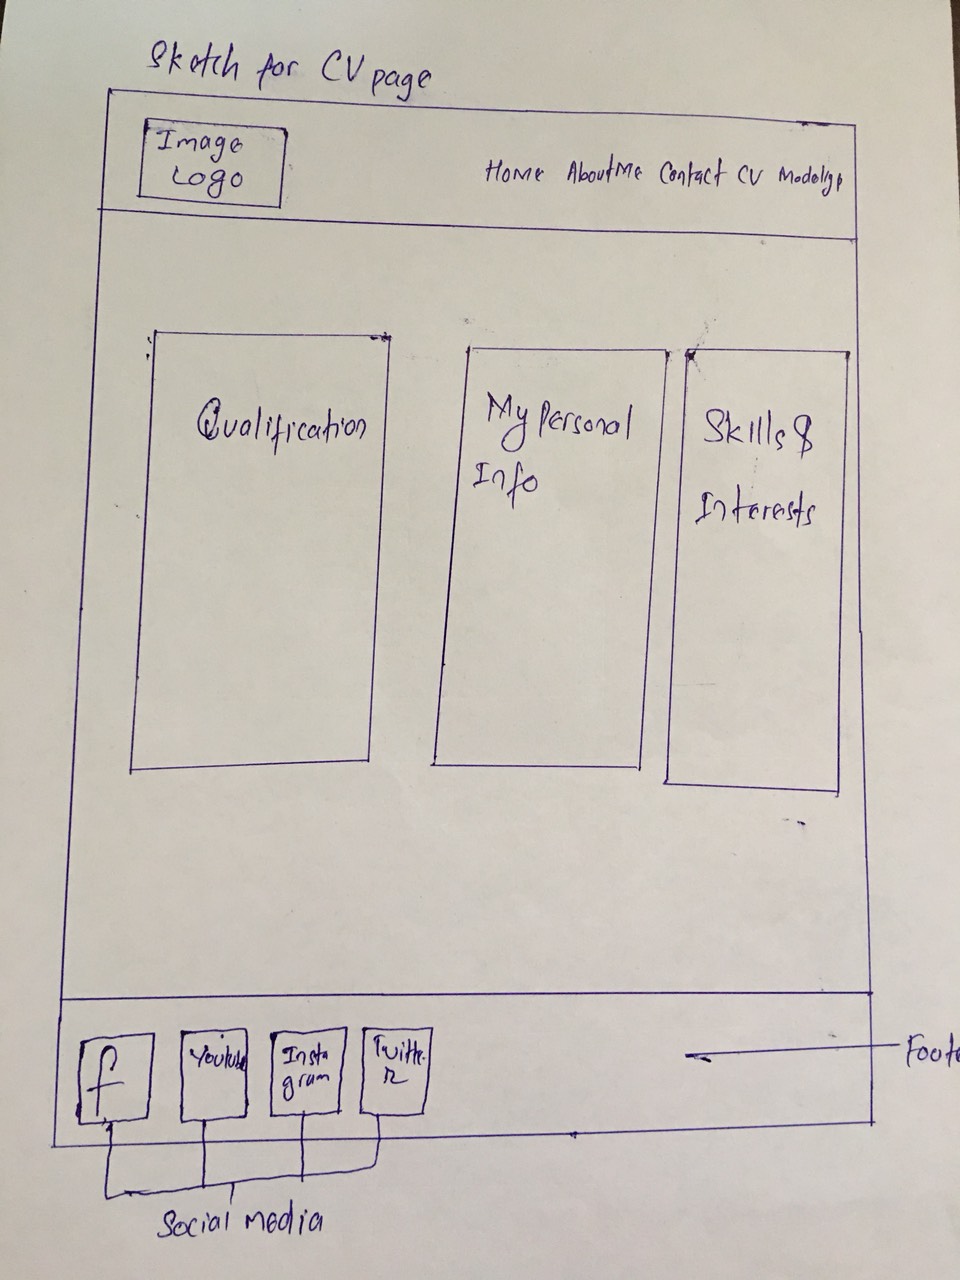 Sketch for CV page
Image
Logo
Home AboutMe Contact CV
Qualification
My Personal
Info
Skills &
Interests
f
Youtube
Insta
gram
Twitte
R
Foote
Social media